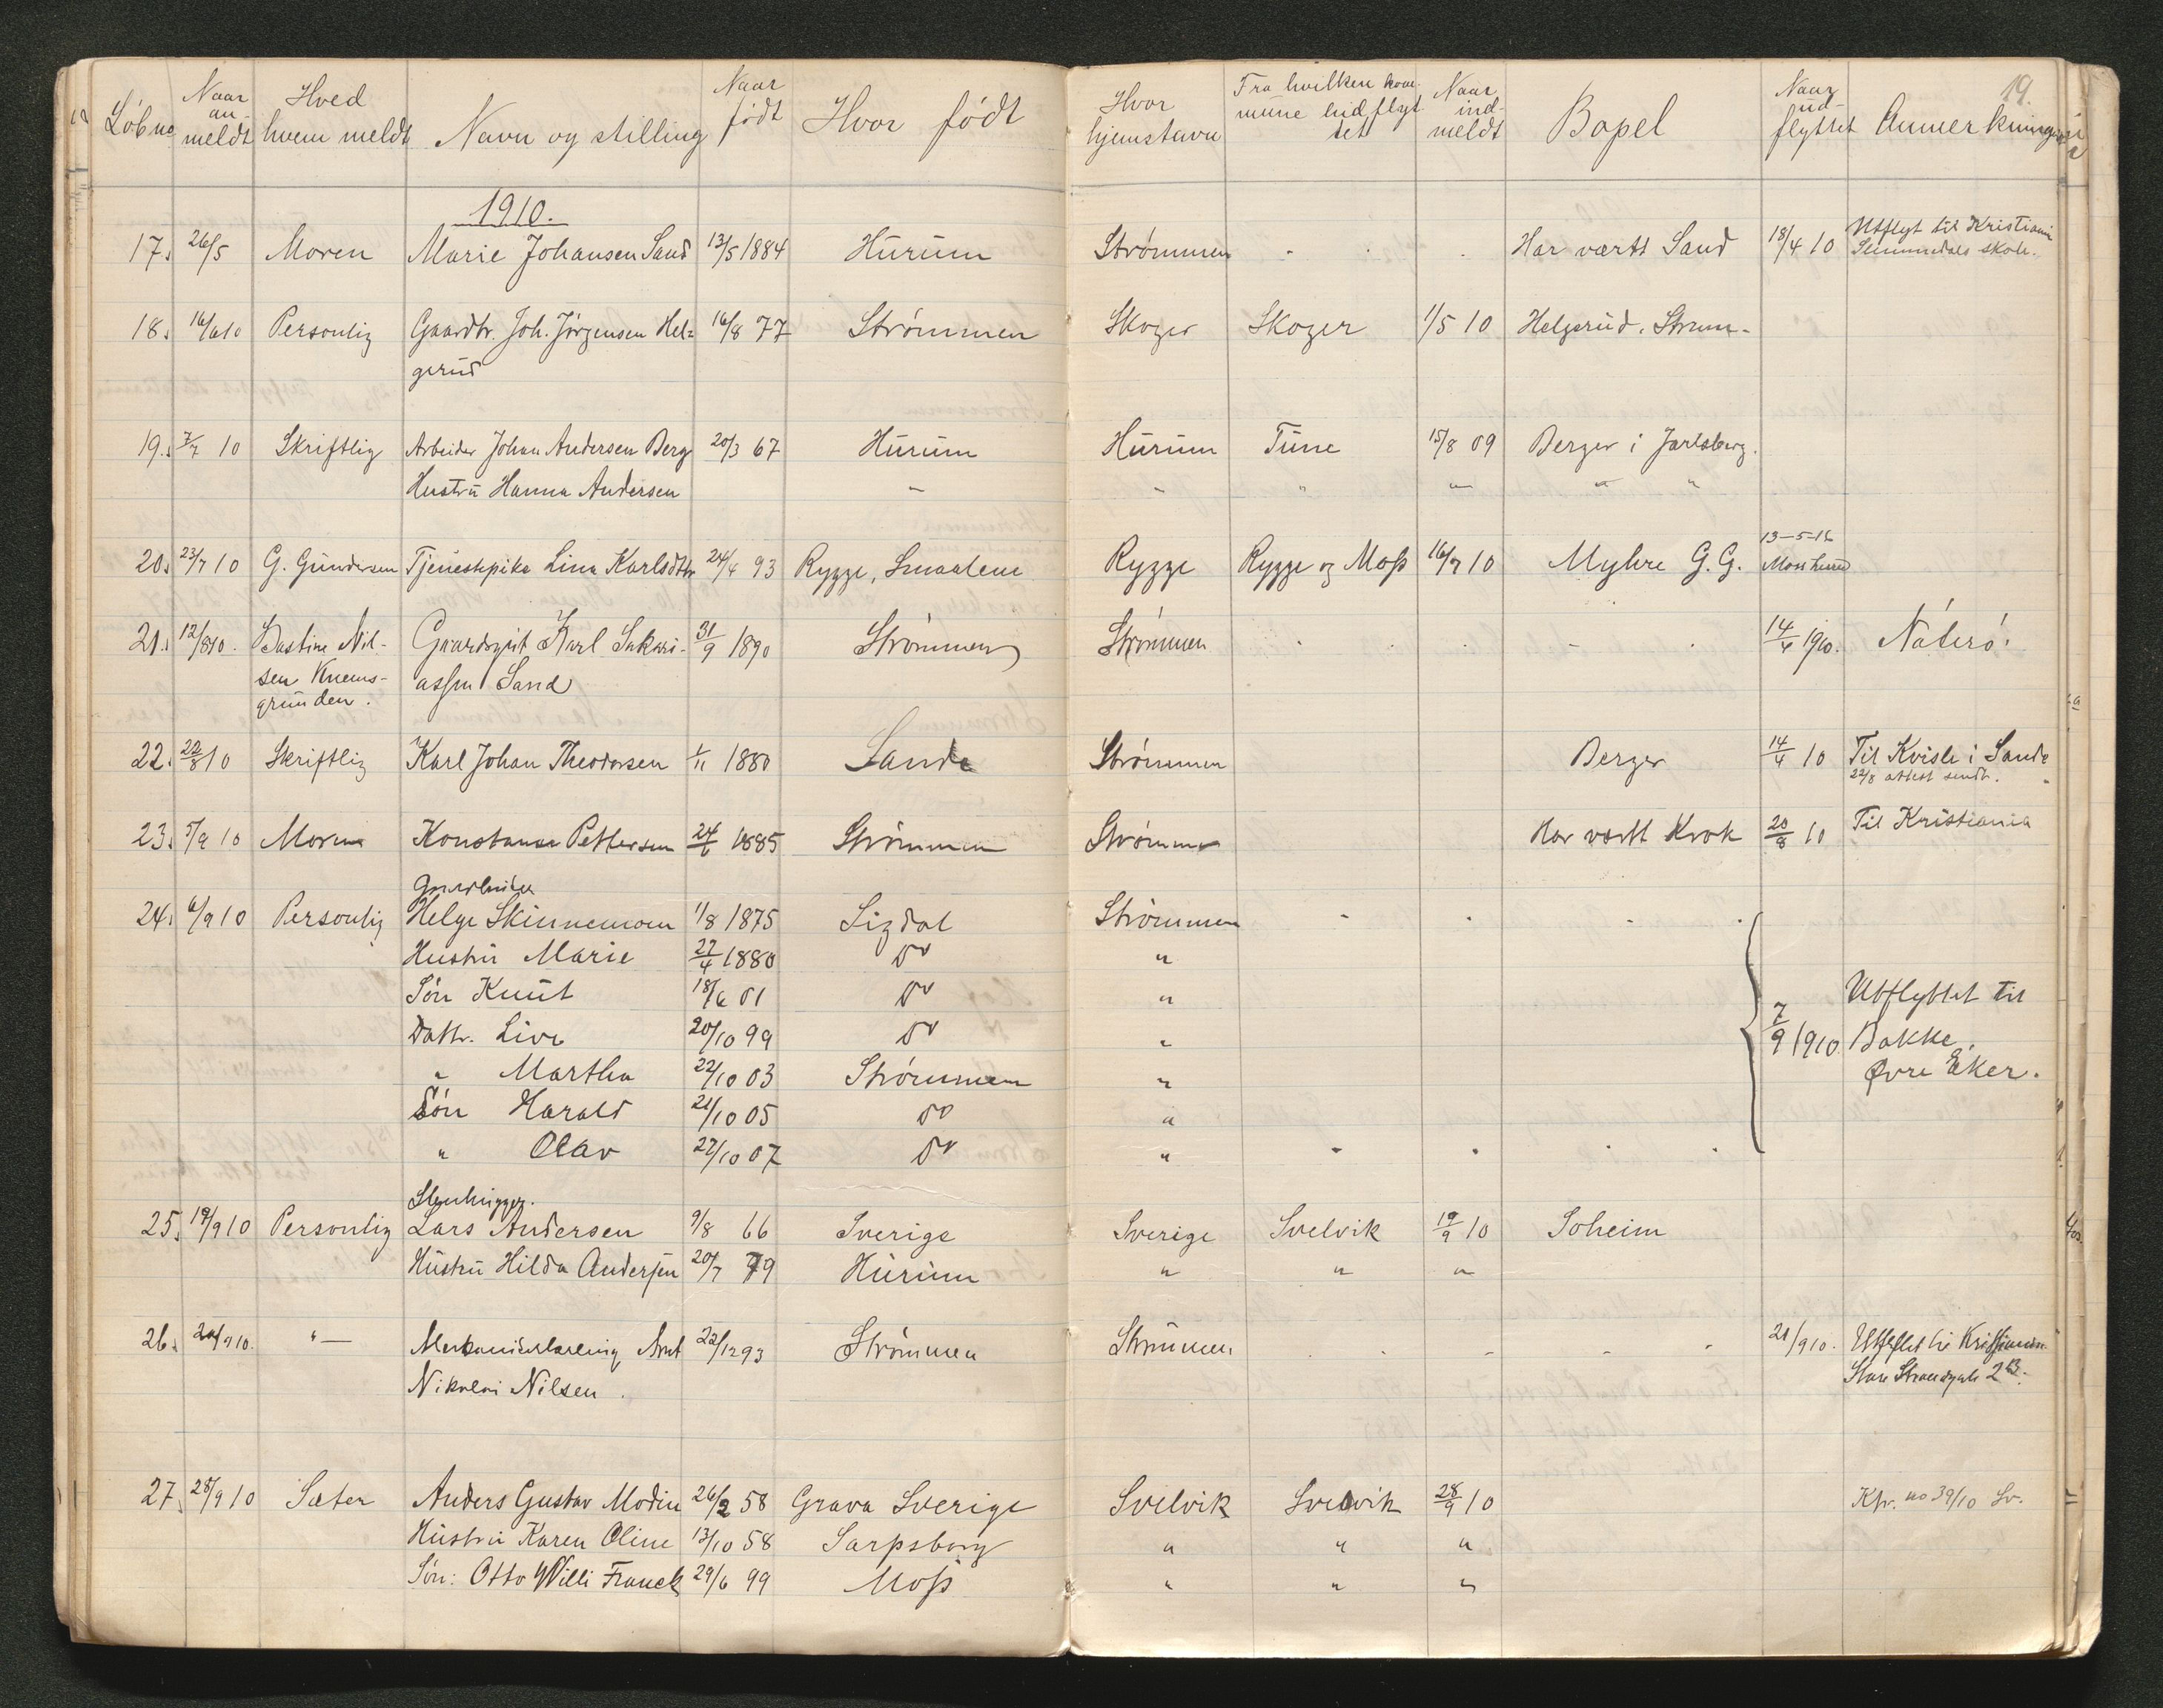 19.
Løbno Naar an- meldt Hved hvem meldt Navn og stilling Naar født Hvor født Hvor hjemstavn Fra hvilken kom- mune indflyt- tet Naar ind- meldt Bopel Naar ud- flyttet Anmerkninger
1910.
17. 26/5 Moren Marie Johansen Sand 13/5 1884 Hurum Strømmen - - - Har vært Sand 18/4 10 Utflyt til Kristiania
skole.
18. 16/6 10 Personlig Gaardbr. Joh. Jørgensen Hel= 16/8 77 Strømmen Skoger Skoger 1/5 10 Helgerud. Strøm-
gerud
19. 7/7 10 Skriftlig Arbeider Johan Andersen Berg 20/3 67 Hurum Hurum Tune 15/8 09 Berger i Jarlsberg.
Hustru Hanna Andersen - " " " " "
20. 23/7 10 G. Gundersen Tjenestepike Lina Karlsdtr 24/4 93 Rygge, Smaalene Rygge Rygge og Moss 16/7 10 Myhre G. G. 13-5-16
21. 12/8 10. Bastine Nil- Gaardsgut Karl Sakari- 31/9 1890 Strømmen Strømmen - - - - - 14/4 1910. Nøterø.
sen Knems- assen Sand
grunden.
22. 22/8 10 Skriftlig Karl Johan Theodorsen 1/11 1880 Sande Strømmen Berger 14/4 10 Til Kvisle i Sande
22/8 attest sendt.
23. 5/9 10 Moren Konstanse Pettersen 24/6 1885 Strømmen Strømmen Har vært Krok 20/8 10 Til Kristiania
Gaardbruker
24. 6/9 10 Personlig Helge Skinnemoen 1/8 1875 Sigdal Strømmen - - - -
Hustru Marie 27/4 1880 Do "
Søn Knut 18/6 01 Do " Utflyttet til
Dattr. Live 20/10 99 Do " 7/9 1910. Bakke,
" Martha 22/10 03 Strømmen " Øvre Eker.
Søn Harald 21/10 05 Do "
" Olav 27/10 07 Do " - - - -
Stenhugger.
25. 19/9 10 Personlig Lars Andersen 9/8 66 Sverige Sverige Svelvik 19/9 10 Soheim
Hustru Hilda Andersen 20/7 79 Hurum " " "
26. 20/9 10. "— Mekanikerlærling Arnt 22/12 93 Strømmen Strømmen - - - - - 21/9 10. Utflyttet til Kristiania
Nikolai Nilsen. Store Strandgate 2
27. 28/9 10 Sæter Anders Gustav Modin 26/2 58 Grava Sverige Svelvik Svelvik 28/9 10 Kfr. no 39/10 Sv.
Hustru Karen Oline 13/10 58 Sarpsborg " " "
Søn: Otto Willi Franck 29/6 99 Moss " " "